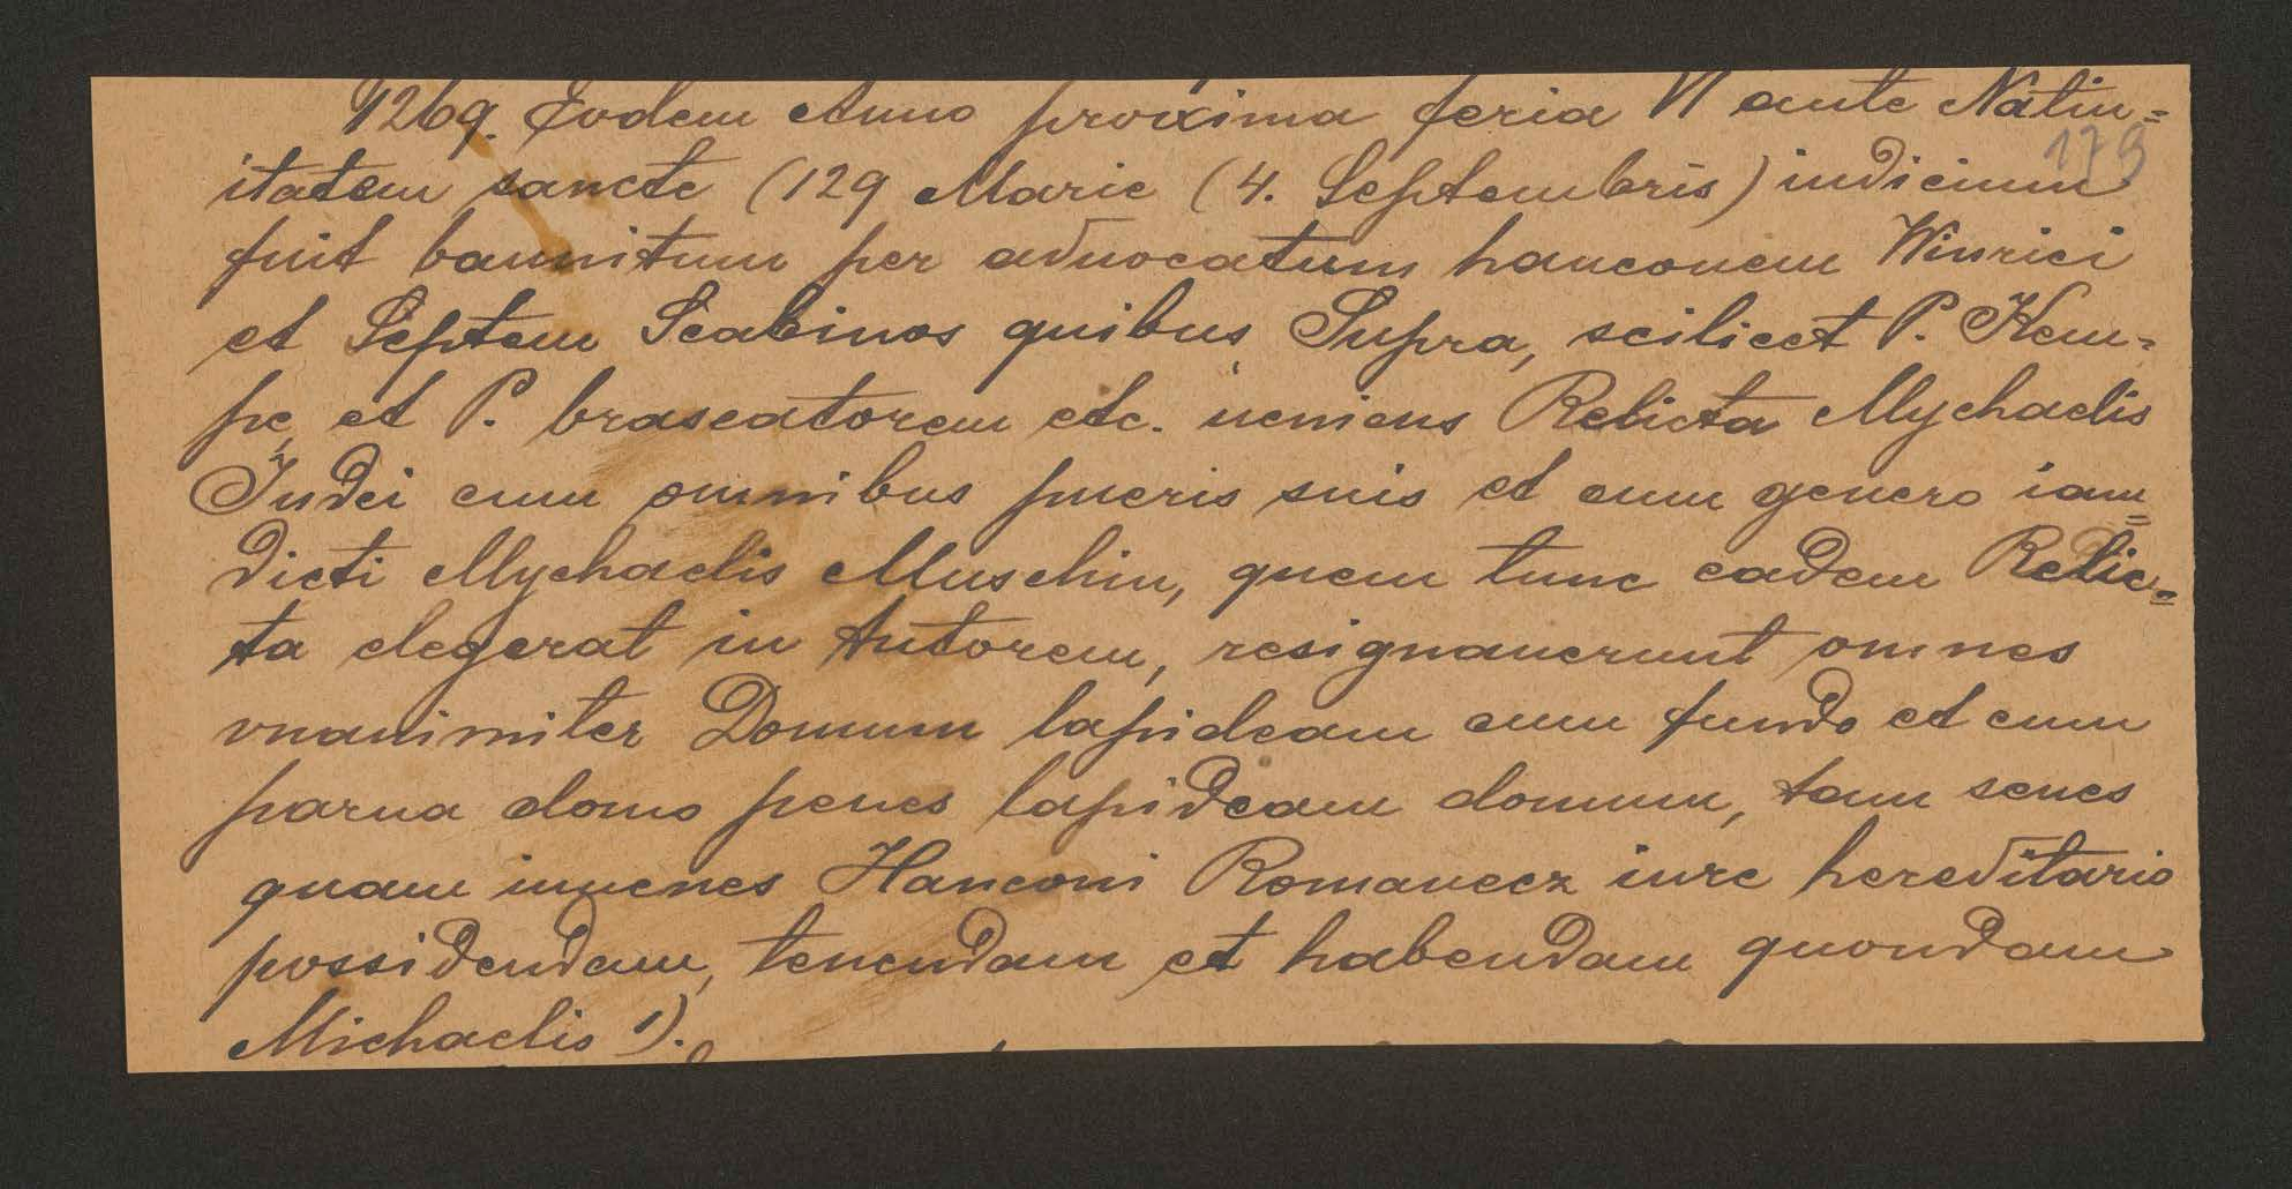 1269. Eodem Anno proxima feria VI ante Natiu=
179
itatem sancte (129 Marie (4. Septembris) iudicium
fuit bannitum per advocatum hanconem Winrici
et Septem Scabinos quibus Supra, scilicet P. Kem-
pe et P. braseatorem etc. ueniens Relicta Mychaelis
Judei cum omnibus pueris suis et cum genero iam=
dicti Mychaelis Muschin, quem tunc eadem Relic=
ta elegerat in tutorem, resignauerunt omnes
vnanimiter Domum lapideam cum fundo et cum
parua domo penes lapideam domum, tam senes
quam iuuenes Hanconi Romancez iure hereditario
possidendam, tenendam et habendam quondam
Michaelis 1).